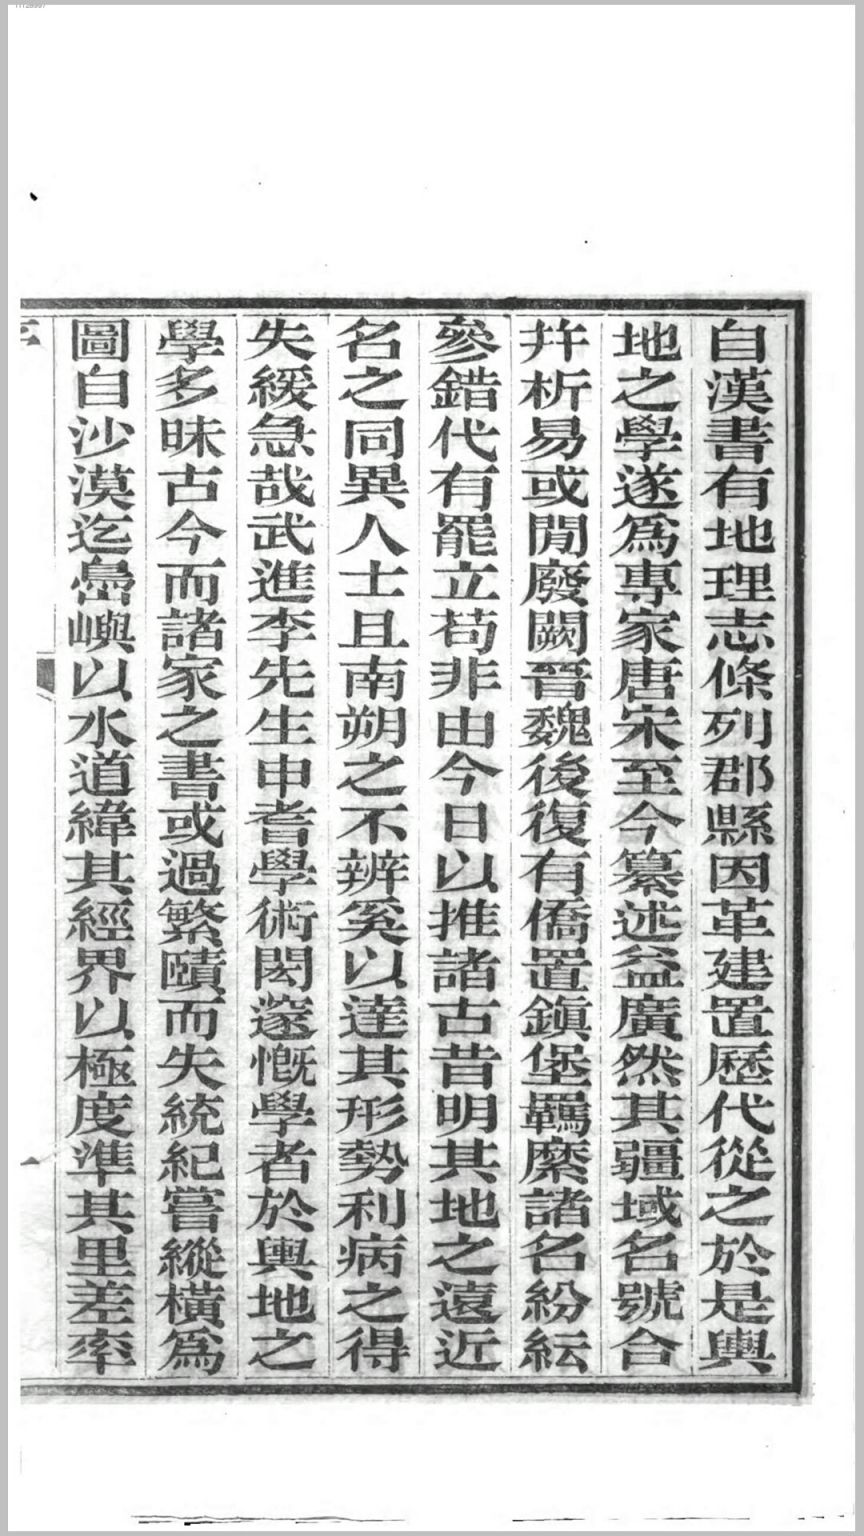 自漢書有地理志條列郡縣因革建置歷代從之於是輿
地之學遂爲專家唐宋至今纂述益廣然其疆域名號合
幷析易或閒廢闕晉魏後復有僑置鎭堡羈縻諸名紛紜
參錯代有罷立苟非由今日以推諸古昔明其地之遠近
名之同異人士且南朔之不辨奚以達其形勢利病之得
失緩急哉武進李先生申耆學術閎邃慨學者於輿地之
學多昧古今而諸家之書或過繁賾而失統紀嘗縱橫爲
圖自沙漠迄嶴嶼以水道緯其經界以極度準其里差率